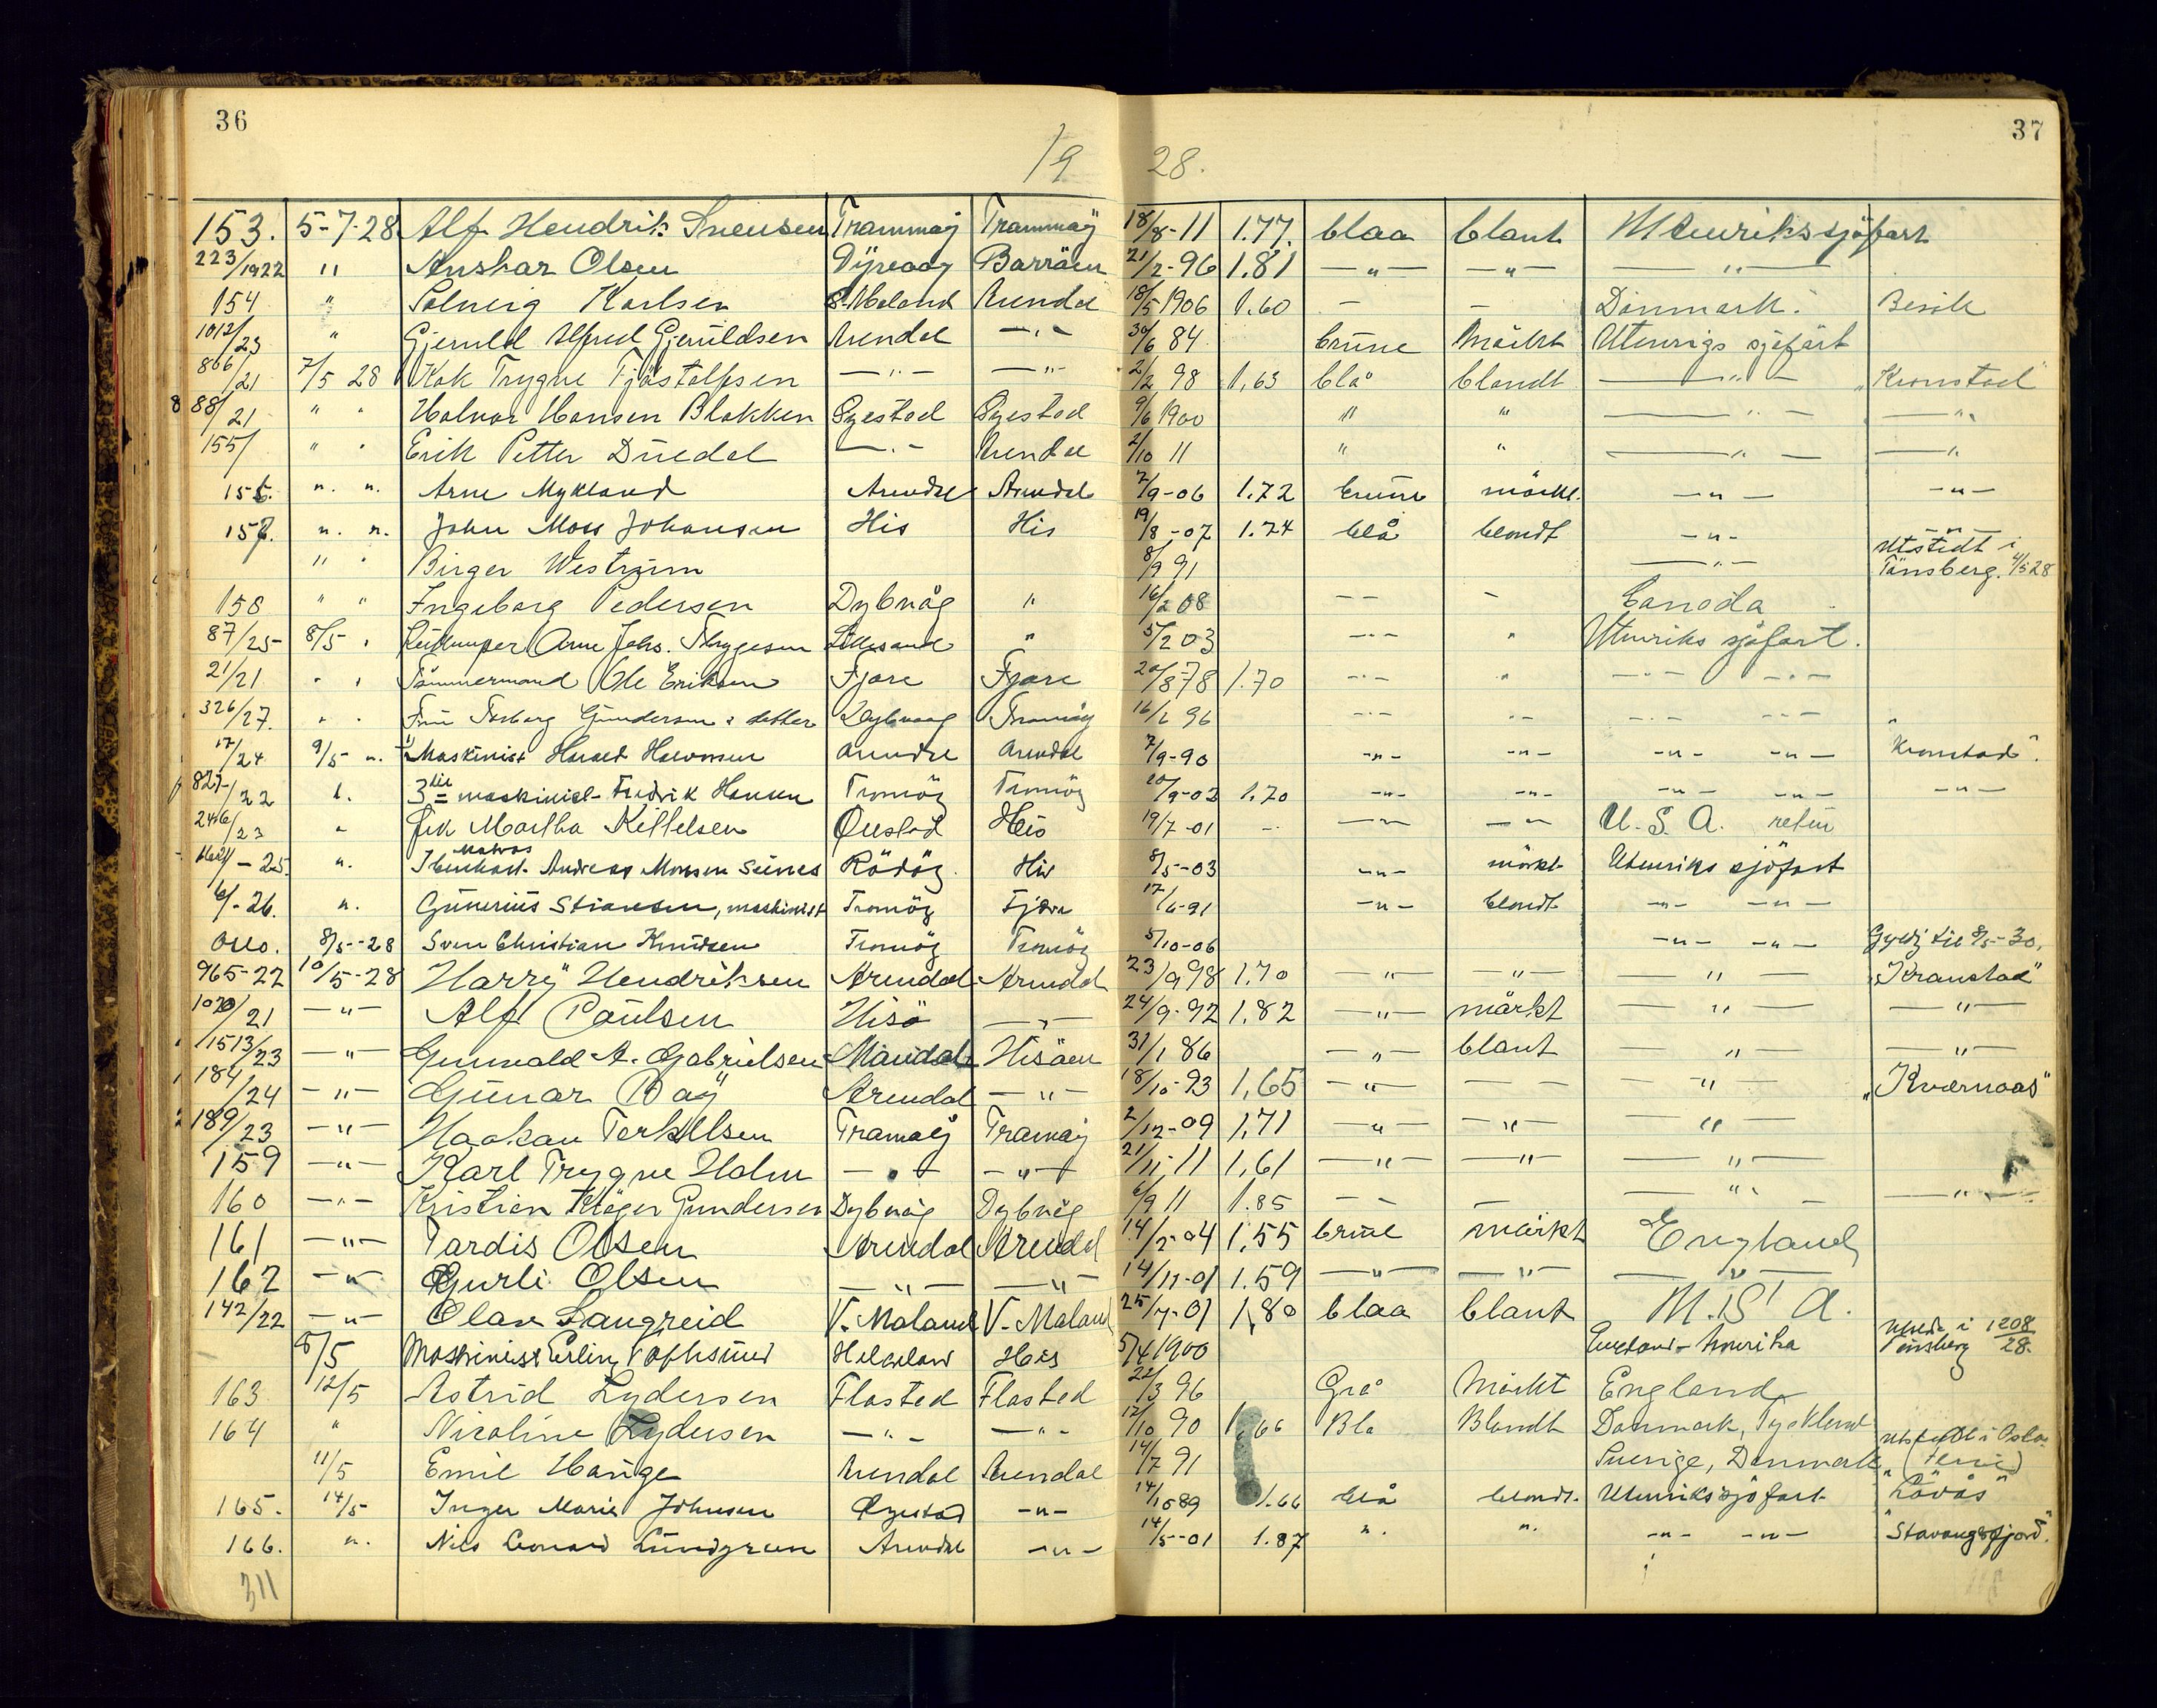 36
37
19 28.
153. 5-7-28 Alf Hendrik Svensen Trammøy Trammøÿ 18/8-11 1.77. blaa blant Utenrikssjøfart
223/1922 " Anshar Olsen Dÿpvaag Barröen 21/2-96 1.81 —"— —"— —"—
154 " Solveig Karlsen Ø. Moland Arendal 18/5 1906 1.60 — — Danmark. Besök
1012/23 " Gjeruld Alfred Gjeruldsen Arendal —"— 30/6 84 brune Mörkt Utenrigs sjøfart
866/21 7/5 28 Kok Trygve Tjöstolfsen —"— —"— 2/2 98 1,63 blå blondt —"— "Kronstad"
88/21 " " Halvor Hansen Blakken Øyestad Øyestad 9/6 1900 " " —"— —"—
155/ " " Erik Petter Duedal —"— Arendal 2/10 11 " " —"— —"—
156. " " Arne Mykland Arendal Arendal 7/9-06 1.72 brune mörkt. —"— —"—
157. " " John Moss Johansen His His 19/8-07 1.74 blå blondt —"— —"—
" " Birger Westrum 8/9 91 —"— Utstedt i Tönsberg. 4/5 28
158 " " Ingeborg Pedersen Dybvåg " 16/2 08 — — Canada
87/25 8/5 " Arne Johs. Thygesen Lillesand " 5/2 03 —"— " Utenriks sjøfart.
21/21 " " Tömmermand Ole Eriksen Fjære Fjære 20/8 78 1.70 —"— " —"— —"—
326/27. " " Fru Torborg Gundersen & datter Dybvaag Tromöy 16/2 96 —"— —"— —"— —"—
17/24 9/5 " Maskinist Harald Halvorsen Arendal Arendal 7/9-90 —"— —"— —"— —"— "Kronstad".
827/22 " 3die maskinist Fredrik Hansen Tromöy Tromöy 20/9-03 1.70 —"— —"— —"— —"— —"—
246/23 " Frk Martha Kittelsen Øiestad His 19/7-01 — —"— —"— U.S.A. retur
25. " Matros Andreas Monsen Seines Rödöy. His 8/5-03 —"— mörkt Utenriks sjöfart
6/-26. " Gunerius Stiansen, maskinist Tromöy Fjære 17/6-91 —"— blondt —"— —"—
Oslo. 8/5-28 Sven Christian Knudsen Tromöy Tromöy 5/10-06 —"— —"— Gyldig til 8/5-30.
965-22 10/5-28 Harry Hendriksen Arendal Arendal 23/9 98 1.70 —"— —"— —"— "Kranstad"
1070/21 —"— Alf Paulsen Hisö —"— 24/9-92 1.82 —"— mörkt —"— —"—
1513/23 —"— Gunvald A. Gabrielsen Mandal Hisöen 31/1 86 —"— blant —"— —"—
184/24 —"— Gunar Bay Arendal —"— 18/10-93 1,65 —"— — —"— "Kværnaas"
189/23 —"— Haakan Terkelsen Tramøy Tramøy 2/12-09 1,71 —"— —"— —"—
159 —"— Karl Trygve Holm —"— —"— 21/11-11 1,61 —"— —"— —"—
160 —"— Kristian Kröger Gundersen Dybvåg Dybvåg 6/9 11 1.85 — — —"— —"—
161 —"— Tardis Olsen Arendal Arendal 14/2-04 1,55 brune mörkt England
162 —"— Gurli Olsen —"— —"— 14/11-01 1.59 —"— —"— —"—
142/22 —"— Olav Langreid V. Moland V. Moland 25/7-01 1,80 blaa blant U.S.A.
8/5 Maskinist Erling His 5/4 1900 England-Amerika Utstedt i Tönsberg 1208/28.
163 12/5 Astrid Lydersen Flosted Flosted 22/3 96 Grå Mörkt England
164 " Nicoline Lydersen —"— —"— 12/10 90 1,66 Blå Blondt Danmark, Tyskland
11/5 Emil Hauge Arendal Arendal 14/7 91 Sverige, Danmark Utstedt i Oslo
165. 14/5 Inger Marie Johnsen Øyestad —"— 14/10 89 1.66 blå blondt. Utenrikssjöfart "Lövås"
166. " Nils Leonard Lundgreen Arendal —"— 14/5-01 1.87 " " —"— —"— "Stavangerfjord".
311